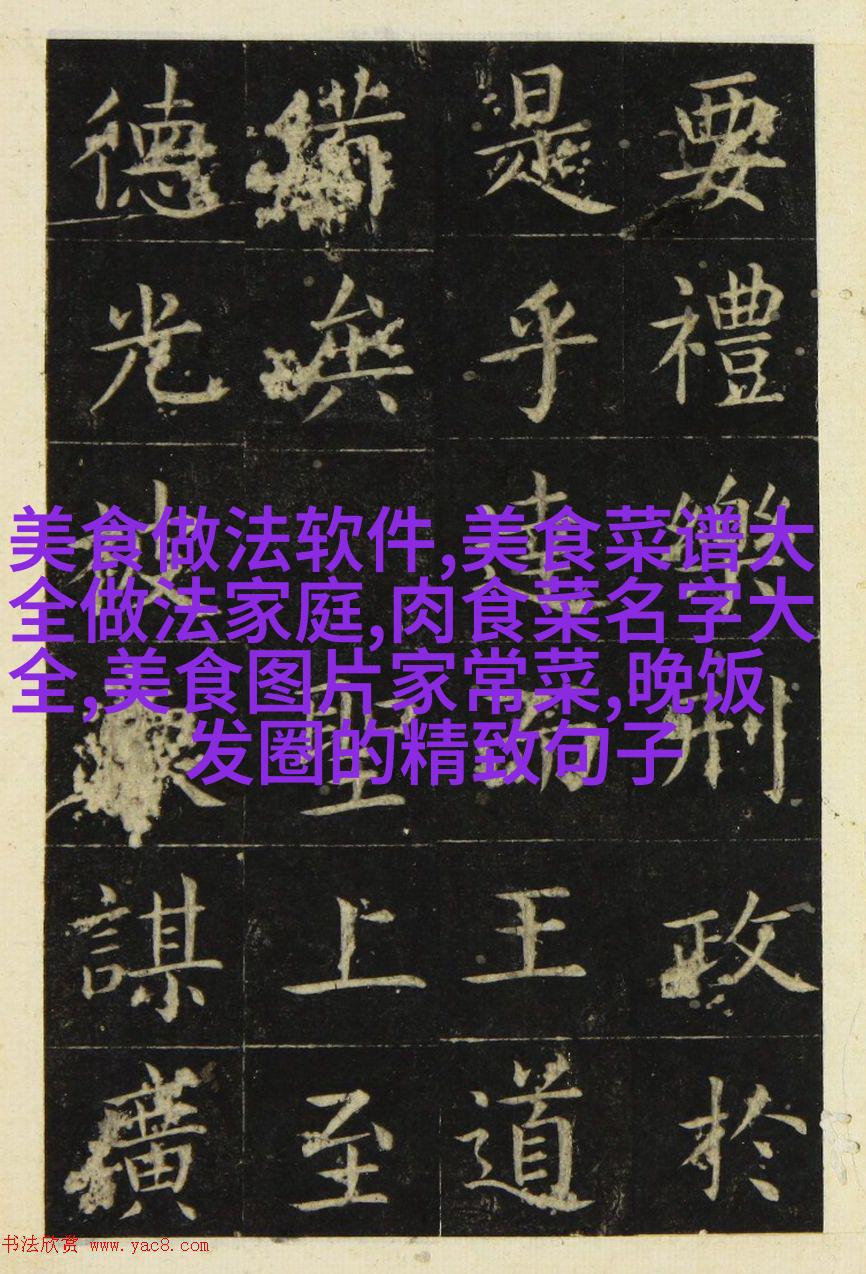 要禮樂刑政於
是乎達王道
備無聖上至
德光被謀廣
美食做法软件,美食菜谱大
全做法家庭,肉食菜名字大
全,美食图片家常菜,晚饭
发圈的精致句子
书法欣赏 www.yac8.com